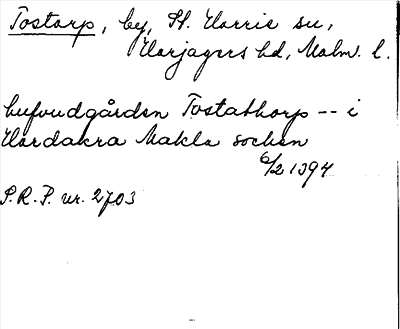 Tostarp, by, St. Harrie sn,
Harjagers hd, Malm. l.
hufvudgården Tostathorp -- i
Hardakra Makla sochen
6/2 1394
P.R.P. nr. 2703